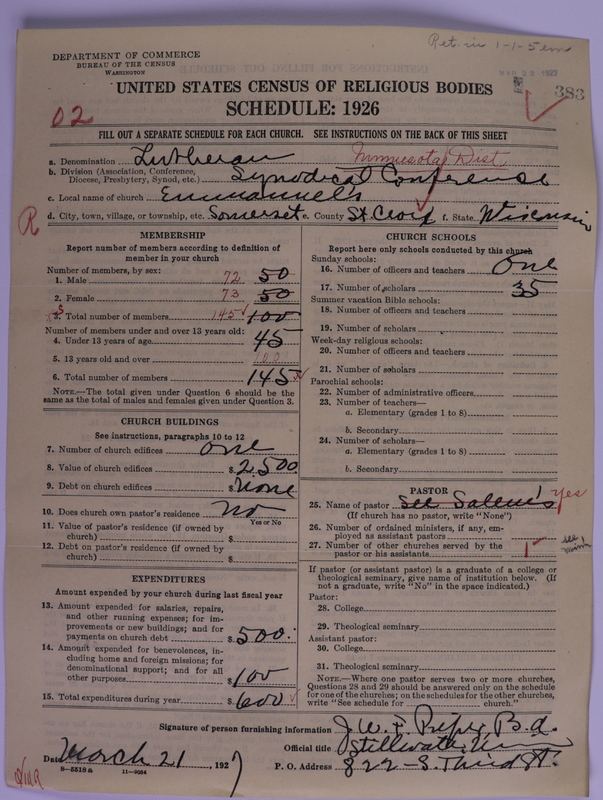 Ret. in 1-1-5
DEPARTMENT OF COMMERCE
BUREAU OF THE CENSUS
WASHINGTON
383
UNITED STATES CENSUS OF RELIGIOUS BODIES
SCHEDULE: 1926
02
FILL OUT A SEPARATE SCHEDULE FOR EACH CHURCH. SEE INSTRUCTIONS ON THE BACK OF THIS SHEET
a. Denomination Lutheran Minnesota Dist
b. Division (Association, Conference, Diocese, Presbytery, Synod, etc.) Synodical Conference
c. Local name of church Emmannuel's
d. City, town, village, or township, etc. Somerset e. County St Croix f. State. Wisconsin
R
MEMBERSHIP
Report number of members according to definition of
member in your church
Number of members, by sex:
1. Male 72 50
2. Female 73 50
3. Total number of members 145 100
Number of members under and over 13 years old:
4. Under 13 years of age 45
5. 13 years old and over 100
6. Total number of members 145
NOTE.—The total given under Question 6 should be the
same as the total of males and females given under Question 3.
CHURCH BUILDINGS
See instructions, paragraphs 10 to 12
7. Number of church edifices one
8. Value of church edifices $ 2500
9. Debt on church edifices $ None
10. Does church own pastor's residence no
Yes or No
11. Value of pastor's residence (if owned by
church) $
12. Debt on pastor's residence (if owned by
church) $
EXPENDITURES
Amount expended by your church during last fiscal year
13. Amount expended for salaries, repairs,
and other running expenses; for im-
provements or new buildings; and for
payments on church debt $ 500.
14. Amount expended for benevolences, in-
cluding home and foreign missions; for
denominational support; and for all
other purposes $ 100
15. Total expenditures during year $ 600
CHURCH SCHOOLS
Report here only schools conducted by this church
Sunday schools:
16. Number of officers and teachers One
17. Number of scholars 35
Summer vacation Bible schools:
18. Number of officers and teachers
19. Number of scholars
Week-day religious schools:
20. Number of officers and teachers
21. Number of scholars
Parochial schools:
22. Number of administrative officers
23. Number of teachers—
a. Elementary (grades 1 to 8)
b. Secondary
24. Number of scholars—
a. Elementary (grades 1 to 8)
b. Secondary
PASTOR
25. Name of pastor see Salem's yes
(If church has no pastor, write "None")
26. Number of ordained ministers, if any, em-
ployed as assistant pastors
27. Number of other churches served by the
pastor or his assistants 1
If pastor (or assistant pastor) is a graduate of a college or
theological seminary, give name of institution below. (If
not a graduate, write "No" in the space indicated.)
Pastor:
28. College
29. Theological seminary
Assistant pastor:
30. College
31. Theological seminary
NOTE.—Where one pastor serves two or more churches,
Questions 28 and 29 should be answered only on the schedule
for one of the churches; on the schedules for the other churches,
write "See schedule for church."
Signature of person furnishing information J. W. F.
Official title Stillwater,
Date March 21, 1927
P. O. Address 822-S. Third St.
8-5518a 11-9034